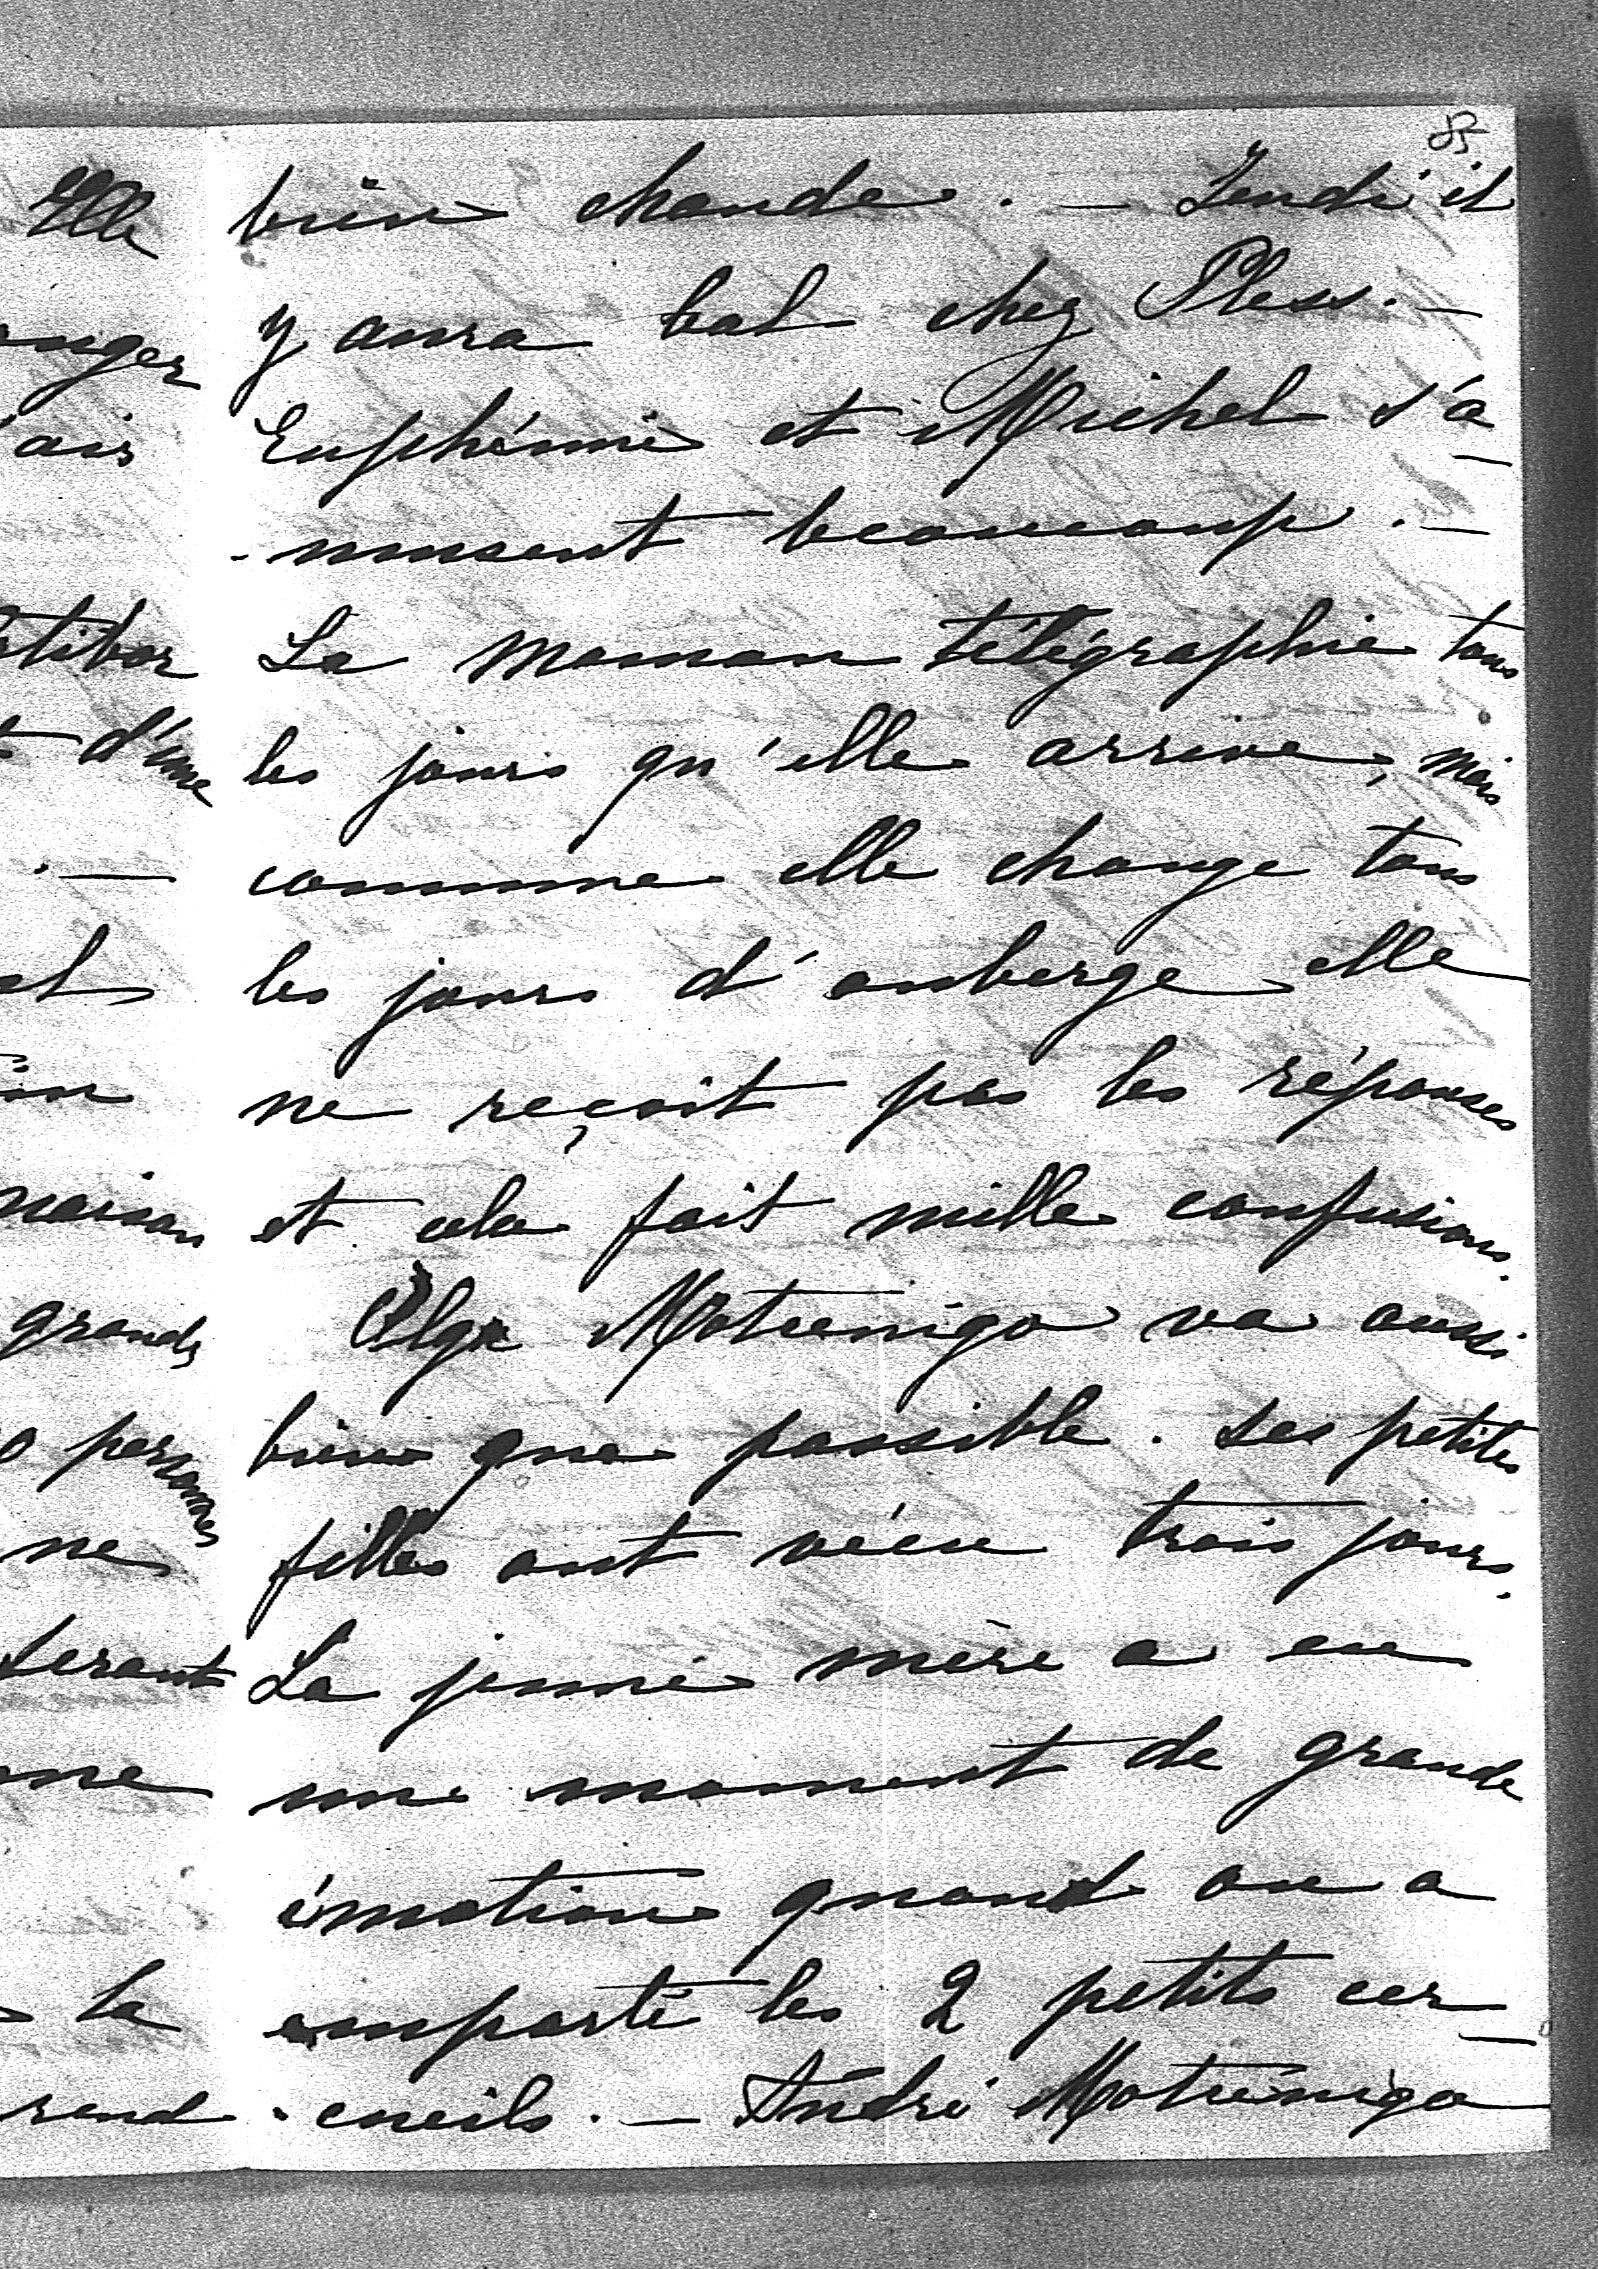 85
bien chaude. — Jeudi il
y aura bal chez Pless. —
Euphémie et Michel s'a
-musent beaucoup. —
La maman télégraphie tous
les jours qu'elle arrive, mais
comme elle change tous
les jours d'auberge elle
ne reçoit pas les réponses
et cela fait mille confusions.
Olga Mocenigo va aussi
bien que possible. Les petites
filles ont vécu trois jours.
La jeune mère a eu
une moment de grande
émotion quand on a
emporté les 2 petits cer—
-cueils. — André Mocenigo
Elle
anger
air
d'une
. —
maison
grands
personnes
ne
seront
la